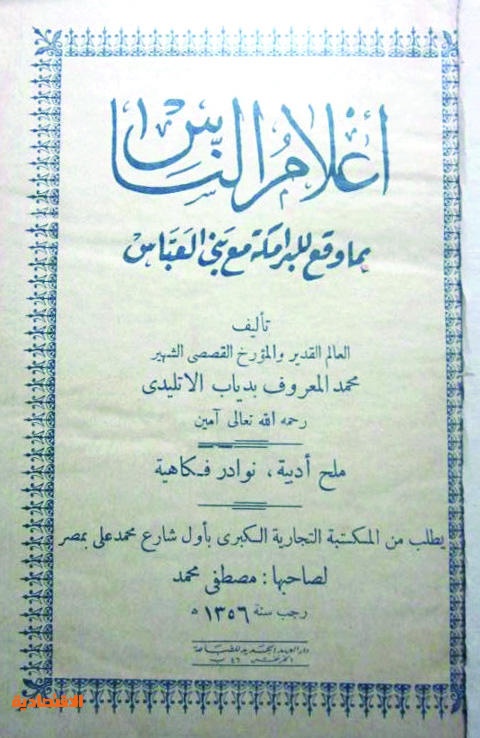 أعْلامُ النَّاسِ
بما وقع للبرامكة مع بَني العَبَّاسْ
تأليف
العالم القدير والمؤرخ القصصى الشهير
محمد المعروف بدياب الاتليدى
رحمه الله تعالى آمين
ملح أدبية، نوادر فكاهية
يطلب من المكتبة التجارية الكبرى بأول شارع محمد على بمصر
لصاحبها: مصطفى محمد
رجب سنة ١٣٥٦ ه
دار العهد الجديد للطباعة
الاقتصادية